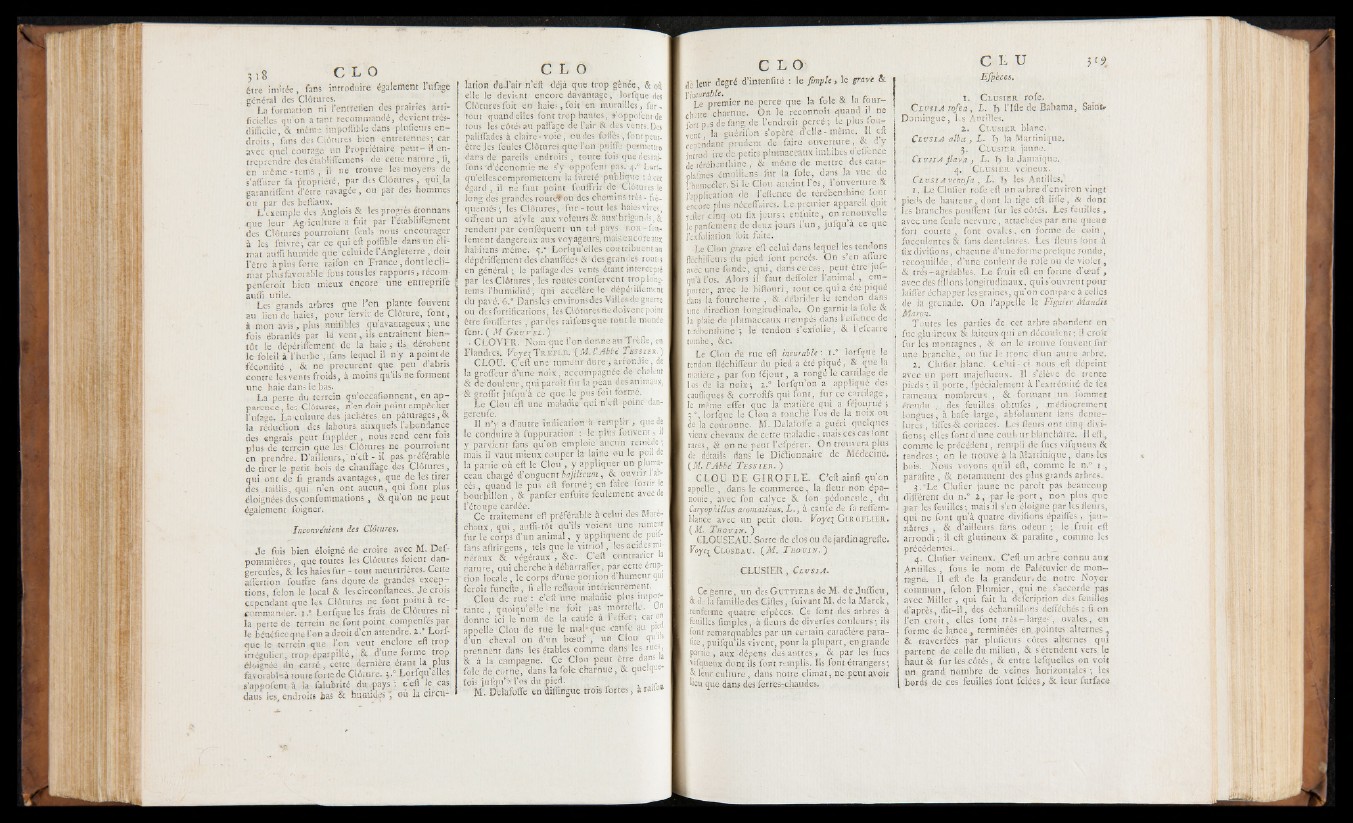 318 CLO
être imitée, fans introduire également l'ufage
général des Clôtures.
La formation ni l'entretien des prairies arti-
ficielles qu'on a tant recommandé, devient très-
difficile, & même impoffible dans plufieurs en-
droits, fans des Clôtures bien entretenues; car
avec quel courage un Propriétaire peut-il en-
treprendre des établiffemens de cette nature, fi,
en même-tems, il ne trouve les moyens de
s'affurer fa propriété, par des Clôtures, qui la
garantiffent d'être ravagée, ou par des hommes
ou par des beftiaux.
L'exemple des Anglois & les progrès étonnans
que leur Agriculture a fait par l'établiffement
des Clôtures pourroient feuls nous encourager
à les fuivre; car ce qui eft poffible dans un cli-
mat auffi humide que celui de l'Angleterre, doit
l'être à plus forte raifon en France, dont le cli-
mat plus favorable fous tous les rapports, récom-
penferoit bien mieux encore une entreprife
auffi utile.
Les grands arbres que l'on plante fouvent
au lieu de haies, pour fervir de Clôture, font,
à mon avis, plus nuifibles qu'avantageux; une
fois ébranlés par le vent, ils entraînent bien-
tôt le dépériffement de la haie; ils dérobent
le foleil à l'herbe, fans lequel il n'y a point de
fécondité, & ne procurent que peu d'abris
contre les vents froids, à moins qu'ils ne forment
une haie dans le bas.
La perte du terrein qu'occafionnent, en ap-
parence, les Clôtures, n'en doit point empêcher
l'ufage. La culture des jachères en pâturages, &
la réduction des labours auxquels l'abondance
des engrais peut fuppléer, nous rend cent fois
plus de terrein que les Clôtures ne pourroient
en prendre. D'ailleurs, n'eft-il pas préférable
de tirer le petit bois de chauffage des Clôtures,
qui ont de fi grands avantages, que de les tirer
des taillis, qui n'en ont aucun, qui font plus
éloignées des confommations, & qu'on ne peut
également foigner.
Inconvéniens des Clôtures.
Je fuis bien éloigné de croire avec M. Def-
pommières, que toutes les Clôtures foient dan-
gereufes, & les haies fur-tout meurtrières. Cette
affertion fouffre fans doute de grandes excep-
tions, felon le local & les circonftances. Je crois
cependant que les Clôtures ne font point à re-
commander. 1.° Lorfque les frais de Clôtures ni
la perte de terrein ne font point compenfés par
le bénéfice que l'on a droit d'en attendre. 2.° Lorf-
que le terrein que l'on veut enclore eft trop
irrégulier, trop éparpillé, & d'une forme trop
éloignée du carré, cette dernière étant la plus
favorable à toute forte de Clôture. 3.° Lorfqu'elles
s'appofent à la falubrité du pays: c'eft le cas
dans les endroits bas & humides; où la circu-
CLO
lation de l'air n'eft déja que trop gênée, & où
elle le devient encore davantage, lorfque des
Clôtures foit en haie, foit en murailles, fur-
tout quand elles font trop hautes, s'oppofent de
tous les côtés au paffage de l'air & des vents. Des
paliffades à claire-voie, ou des foffés, font peut-
être les feules Clôtures que l'on puiffe permettre
dans de pareils endroits, toute fois que des rai-
fons d'économie ne s'y oppofent pas. 4.° Lorf-
qu'elles compromettent la fûreté publique: à cet
égard, il ne faut point fouffrir de Clôtures le
long des grandes routes ou des chemins très-fré-
quentés; les Clôtures, fur-tout les haies vives,
offrent un afyle aux voleurs & aux brigands, &
rendent par conféquent un tel pays non-feu-
lement dangereux aux voyageurs, mais encore aux
habitans même. 5.° Lorfqu'elles contribuent au
dépériffement des chauffées & des grandes routes
en général; le paffage des vents étant intercepté
par les Clôtures, les routes confervent trop long-
tems l'humidité, qui accélère le dépériffement
du pavé. 6.° Dans les environs des Villes de guerre
ou des fortifications, les Clôtures ne doivent point
être fouffertes, par des raifons que tout le monde
fent. (M. GRUVEL.)
CLOVER. Nom que l'on donne au Trefle, en
Flandres. Voyez TREFLE. (M. l'Abbé TESSIER.)
CLOU. C'eft une tumeur dure, arrondie, de
la groffeur d'une noix, accompagnée de chaleur
& de douleur, qui paroît fur la peau des animaux,
& groffit jufqu'à ce que le pus foit formé.
Le Clou eft une maladie qui n'eft point dan-
gereufe.
Il n'y a d'autre indication à remplir, que de
le conduire à fuppuration: le plus fouvent, il
y parvient fans qu'on emploie aucun remède;
mais il vaut mieux couper la laine ou le poil de
la partie où eft le Clou, y appliquer un pluma-
ceau chargé d'onguent bafilicum, & ouvrir l'ab-
cès, quand le pus eft formé; en faire fortir le
bourbillon, & panfer enfuite feulement avec de
l'étoupe cardée.
Ce traitement eft préférable à celui des Maré-
chaux, qui, auffi-tôt qu'ils voient une tumeur
fur le corps d'un animal, y appliquent de puif-
fans aftringens, tels que le vitriol, les acides mi-
néraux & végéaux, &c. C'eft contrarier la
nature, qui cherche à débarraffer, par cette érup-
tion locale, le corps d'une portion d'humeur qui
feroit funefte, fi elle refluoit intérieurement.
Clou de rue: c'eft une maladie plus impor-
tante, quoiqu'elle ne foit pas mortelle. On
donne ici le nom de la caufe à l'effet; car on
appelle Clou de rue le mal que caufe au pied
d'un cheval ou d'un bœuf, un Clou qu'ils
prennent dans les étables comme dans les rues,
& à la campagne. Ce Clou peut être dans la
fole de corne, dans la fole charnue, & quelque-
fois jufqu'à l'os du pied.
M. Delafoffe en diftingue trois fortes, à raifon
CLO
de leur degré d'intenfité: le fimple, le grave &
l'incurable.
Le premier ne perce que la fole & la four-
chette charnue. On le reconnoît quand il ne
fort pas de fang de l'endroit percé; le plus fou-
vent, la guérifon s'opère d'elle-même. Il eft
cependant prudent de faire ouverture, & d'y
introduire de petits plumaceaux imbibés d'effence
de térébenthine, & même de mettre des cata-
plafmes émolliens fur la fole, dans la vue de
l'humecter. Si le Clou atteint l'os, l'ouverture &
l'application de l'effence de térébenthine font
encore plus néceffaires. Le premier appareil doit
refter cinq ou fix jours: enfuite, on renouvelle
le panfement de deux jours l'un, jufqu'à ce que
l'exfoliation foit faite.
Le Clou grave eft celui dans lequel les tendons
fléchiffeurs du pied font percés. On s'en affure
avec une fonde, qui, dans ce cas, peut être juf-
qu'à l'os. Alors il faut deffoler l'animal, em-
porter, avec le biftouri, tout ce qui a été piqué
dans la fourchette, & débrider le tendon dans
une direction longitudinale. On garnit la fole &
la plaie de plumaceaux trempés dans l'effence de
térébenthine; le tendon s'exfolie, & l'efcarre
tombe, &c.
Le Clou de rue eft incurable: 1.° lorfque le
tendon fléchiffeur du pied a été piqué, & que la
matière, par fon féjour, a rongé le cartilage de
l'os de la noix; 2.° lorfqu'on a appliqué des
cauftiques & corrofifs qui font, fur ce cartilage,
le même effet que la matière qui a féjourné;
3.° lorfque le Clou a touché l'os de la noix ou
de la couronne. M. Delafoffe a guéri quelques
vieux chevaux de cette maladie, mais ces cas font
rares, & on ne peut l'efpérer. On trouvera plus
de détails dans le Dictionnaire de Médecine.
(M. l'Abbé TESSIER.)
CLOU DE GIROFLE. C'eft ainfi qu'on
appelle, dans le commerce, la fleur non épa-
nouie, avec fon calyce & fon pédoncule, du
Caryophillus aromaticus, L., à caufe de fa reffem-
blance avec un petit clou. Voyez GIROFLIER.
(M. THOUIN.)
CLOUSEAU. Sorte de clos ou de jardin agrefte.
Voyez CLOSEAU. (M. THOUIN.)
CLUSIER, CLUSIA.
Ce genre, un des GUTTIERS de M. de Juffieu,
& de la famille des Ciftes, fuivant M. de la Marck,
renferme quatre efpèces. Ce font des arbres à
feuilles fimples, à fleurs de diverfes couleurs; ils
font remarquables par un certain caractère para-
fite, puifqu'ils vivent, pour la plupart, en grande
partie, aux dépens des autres, & par les fucs
vifqueux dont ils font remplis. Ils font étrangers;
& leur culture, dans notre climat, ne peut avoir
lieu que dans des ferres-chaudes.
CLU 319
Efpèces.
1. CLUSIER rofe.
CLUSIA rofea, L. ♄ l'Ifle de Bahama, Saint-
Domingue, les Antilles.
2. CLUSIER blanc.
CLUSIA alba, L. ♄ la Martinique.
3. CLUSIER jaune.
CLUSIA flava, L. ♄ la Jamaïque.
4. CLUSIER veineux.
CLUSIA venofa, L. ♄ les Antilles.
1. Le Clufier rofe eft un arbre d'environ vingt
pieds de hauteur, dont la tige eft liffe, & dont
les branches pouffent fur les côtés. Les feuilles,
avec une feule nervure, attachées par une queue
fort courte, font ovales, en forme de coin,
fucculentes & fans dentelures. Les fleurs font à
fix divifions, chacune d'une forme prefque ronde,
recoquillée, d'une couleur de rofe ou de violet,
& très-agréables. Le fruit eft en forme d'œuf,
avec des fillons longitudinaux, qui s'ouvrent pour
laiffer échapper les graines, qu'on compare à celles
de la grenade. On l'appelle le Figuier Maudit
Maron.
Toutes les parties de cet arbre abondent en
fuc glutineux & laiteux qui en découlent: il croît
fur les montagnes, & on le trouve fouvent fur
une branche, ou fur le tronc d'un autre arbre.
2. Clufier blanc. Celui-ci nous eft dépeint
avec un port majeftueux. Il s'élève de trente
pieds: il porte, fpécialement à l'extrémité de fes
rameaux nombreux, & formant un fommet
étendu, des feuilles obtufes, médiocrement
longues, à bafe large, abfolument fans dente-
lures, liffes & coriaces. Les fleurs ont cinq divi-
fions; elles font d'une couleur blanchâtre. Il eft,
comme le précédent, rempli de fucs vifqueux &
tendres; on le trouve à la Martinique, dans les
bois. Nous voyons qu'il eft, comme le n.° 1,
parafite, & notamment des plus grands arbres.
3. Le Clufier jaune ne paroît pas beaucoup
différent du n.° 2, par le port, non plus que
par les feuilles; mais il s'en éloigne par les fleurs,
qui ne font qu'à quatre divifions épaiffes, jau-
nâtres, & d'ailleurs fans odeur; le fruit eft
arrondi; il eft glutineux & parafite, comme les
précédentes.
4. Clufier veineux. C'eft un arbre connu aux
Antilles, fous le nom de Palétuvier de mon-
tagne. Il eft de la grandeur de notre Noyer
commun, felon Plumier, qui ne s'accorde pas
avec Miller, qui fait la defcription des feuilles
d'après, dit-il, des échantillons defféchés: fi on
l'en croit, elles font très-larges, ovales, en
forme de lance, terminées en pointes alternes,
& traverfées par plufieurs côtes alternes qui
partent de celle du milieu, & s'étendent vers le
haut & fur les côtés, & entre lefquelles on voit
un grand nombre de veines horizontales; les
bords de ces feuilles font fciées, & leur furface